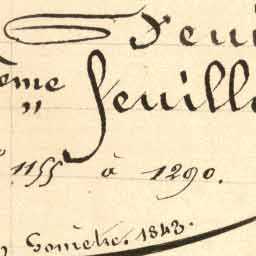 Feui
ème
" feuill
1155 à 1290.
Gomiche. 1843.